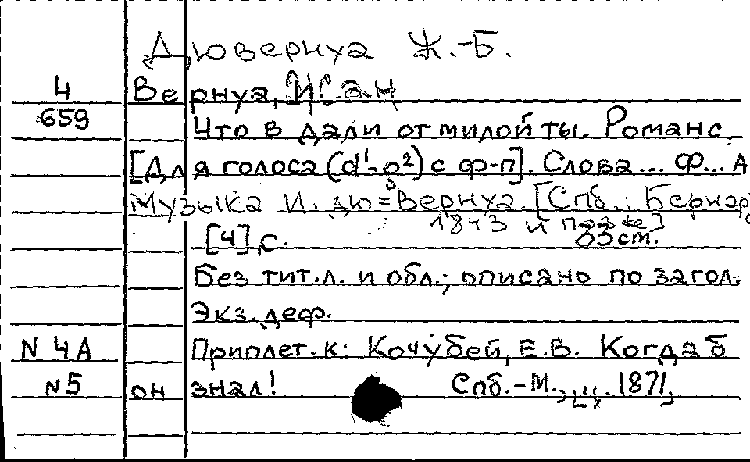 Дювернуа Ж.-Б.
4 Вернуа,
659
Что в дали от милой ты. Романс.
[Для голоса (d¹-g²) с ф-п]. Слова... Ф... А
Музыка И. дю=Вернуа. [Спб.: Бернар
1843 и позже]
[4] с. 33 см.
Без тит.л. и обл.; описано по загол.
Экз. деф.
N 4А Приплет. к: Кочубей, Е.В. Когда б
N5 он знал! Спб.-М., 1871,